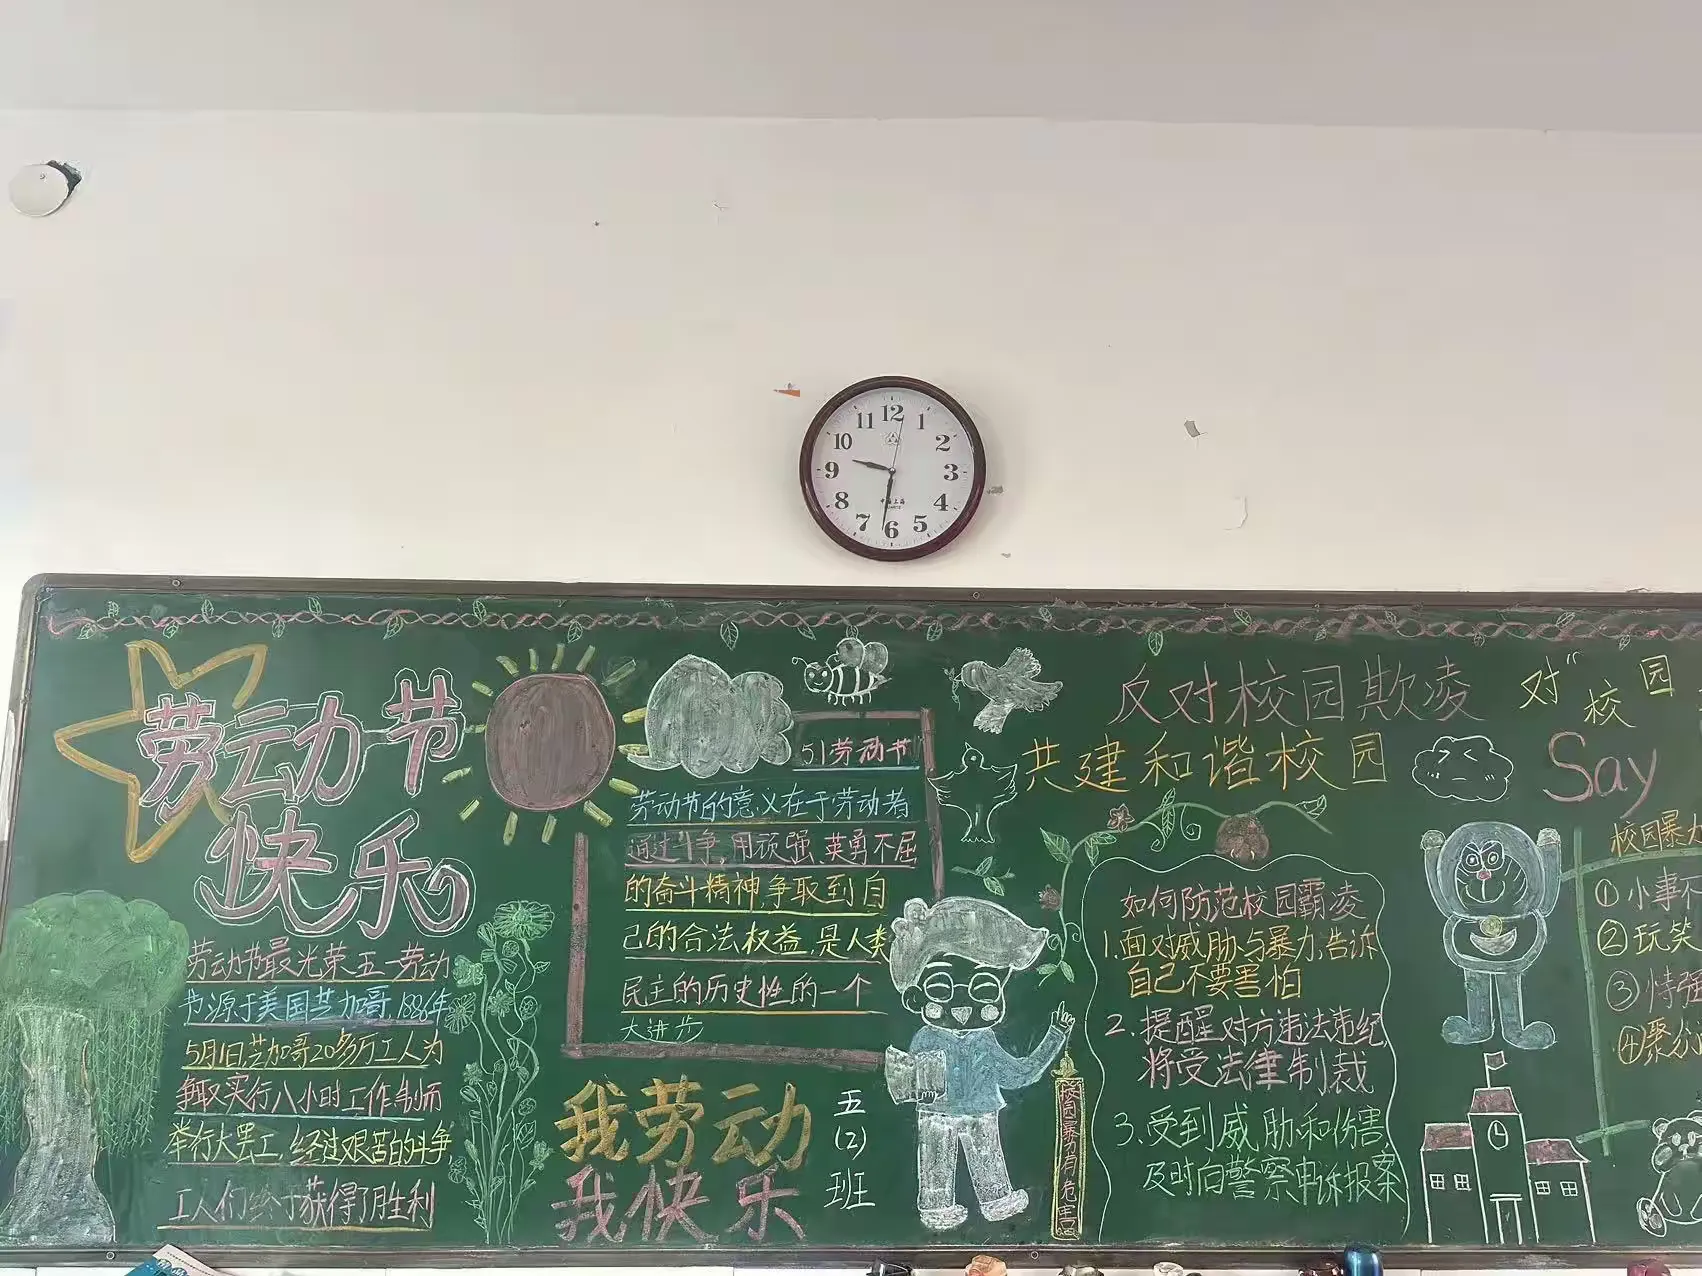 12
1
2
3
4
5
6
7
8
9
10
11
中国上海
劳动节
快乐
劳动节最光荣,五一劳动
节源于美国芝加哥,1886年
5月1日,芝加哥20多万工人为
争取实行八小时工作制而
举行大罢工,经过艰苦的斗争,
工人们终于获得了胜利
51劳动节
劳动节的意义在于劳动者
通过斗争,用顽强、英勇不屈
的奋斗精神,争取到自
己的合法权益,是人类
民主的历史性的一个
大进步
我劳动
我快乐
五
(2)
班
校园暴力有危害
反对校园欺凌
共建和谐校园
如何防范校园霸凌
1.面对威胁与暴力,告诉
自己不要害怕
2.提醒对方违法违纪
将受法律制裁
3.受到威胁和伤害,
及时向警察申诉报案
对“校园
Say
校园暴力
①小事不
②玩笑
③恃强
④聚众